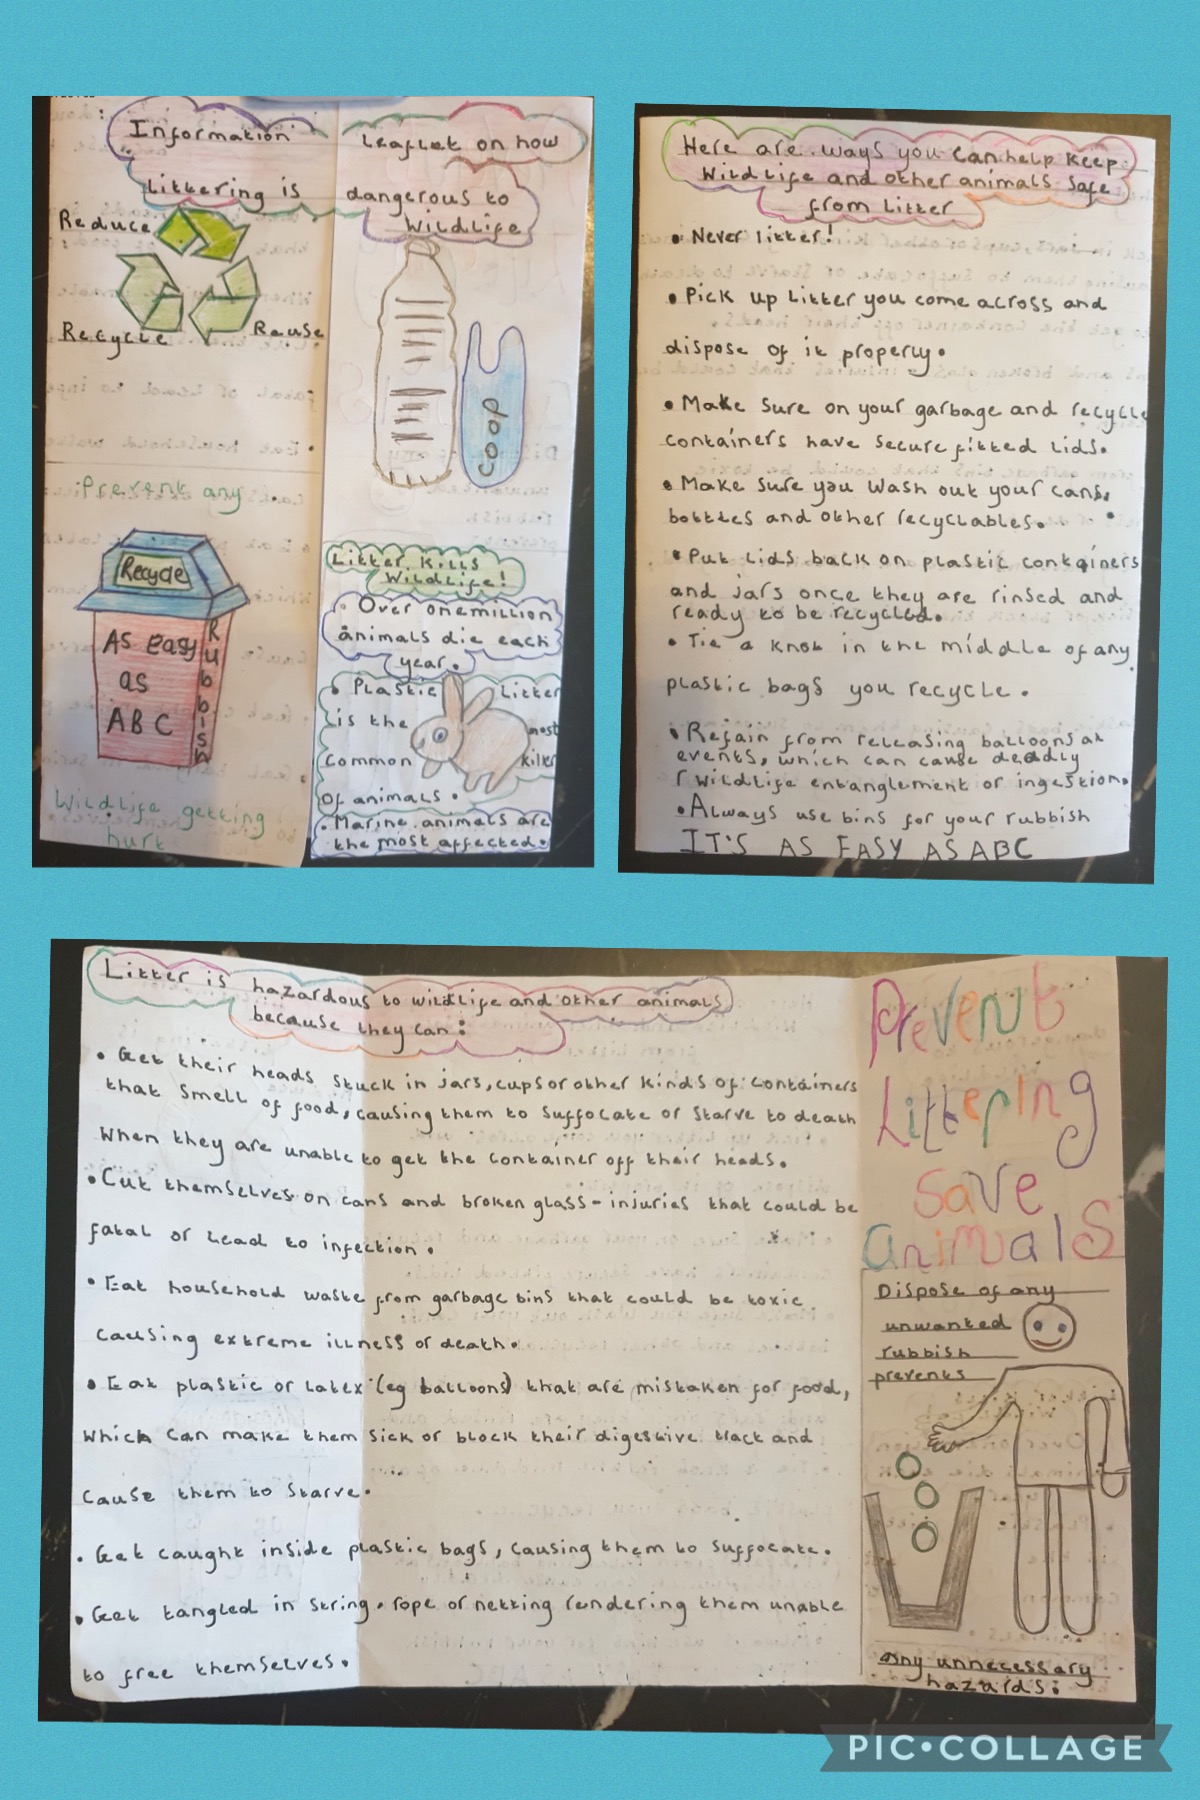 Information Leaflet on how
Littering is dangerous to
Wildlife
Reduce
Recycle Reuse
coop
Prevent any
Recycle
As easy
as
ABC
Rubbish
Wildlife getting
hurt
Litter kills
Wildlife!
• Over one million
animals die each
year.
• Plastic Litter
is the most
common killer
of animals.
• Marine animals are
the most affected.
Here are ways you can help keep
Wildlife and other animals safe
from litter
• Never litter!
• Pick up litter you come across and
dispose of it properly.
• Make sure on your garbage and recycle
containers have secure fitted lids.
• Make sure you wash out your cans,
bottles and other recyclables.
• Put lids back on plastic containers
and jars once they are rinsed and
ready to be recycled.
• Tie a knot in the middle of any
plastic bags you recycle.
• Refain from releasing balloons at
events, which can cause deadly
wildlife entanglement or ingestion.
• Always use bins for your rubbish
IT'S AS EASY AS ABC
Litter is hazardous to wildlife and other animals
because they can:
• Get their heads stuck in jars, cups or other kinds of containers
that smell of food, causing them to suffocate or starve to death
when they are unable to get the container off their heads.
• Cut themselves on cans and broken glass - injuries that could be
fatal or lead to infection.
• Eat household waste from garbage bins that could be toxic
causing extreme illness or death.
• Eat plastic or latex (eg balloons) that are mistaken for food,
which can make them sick or block their digestive track and
cause them to starve.
• Get caught inside plastic bags, causing them to suffocate.
• Get tangled in string, rope or netting rendering them unable
to free themselves.
Prevent
Littering
save
animals
Dispose of any
unwanted
rubbish
prevents
any unnecessary
hazards:
PIC•COLLAGE